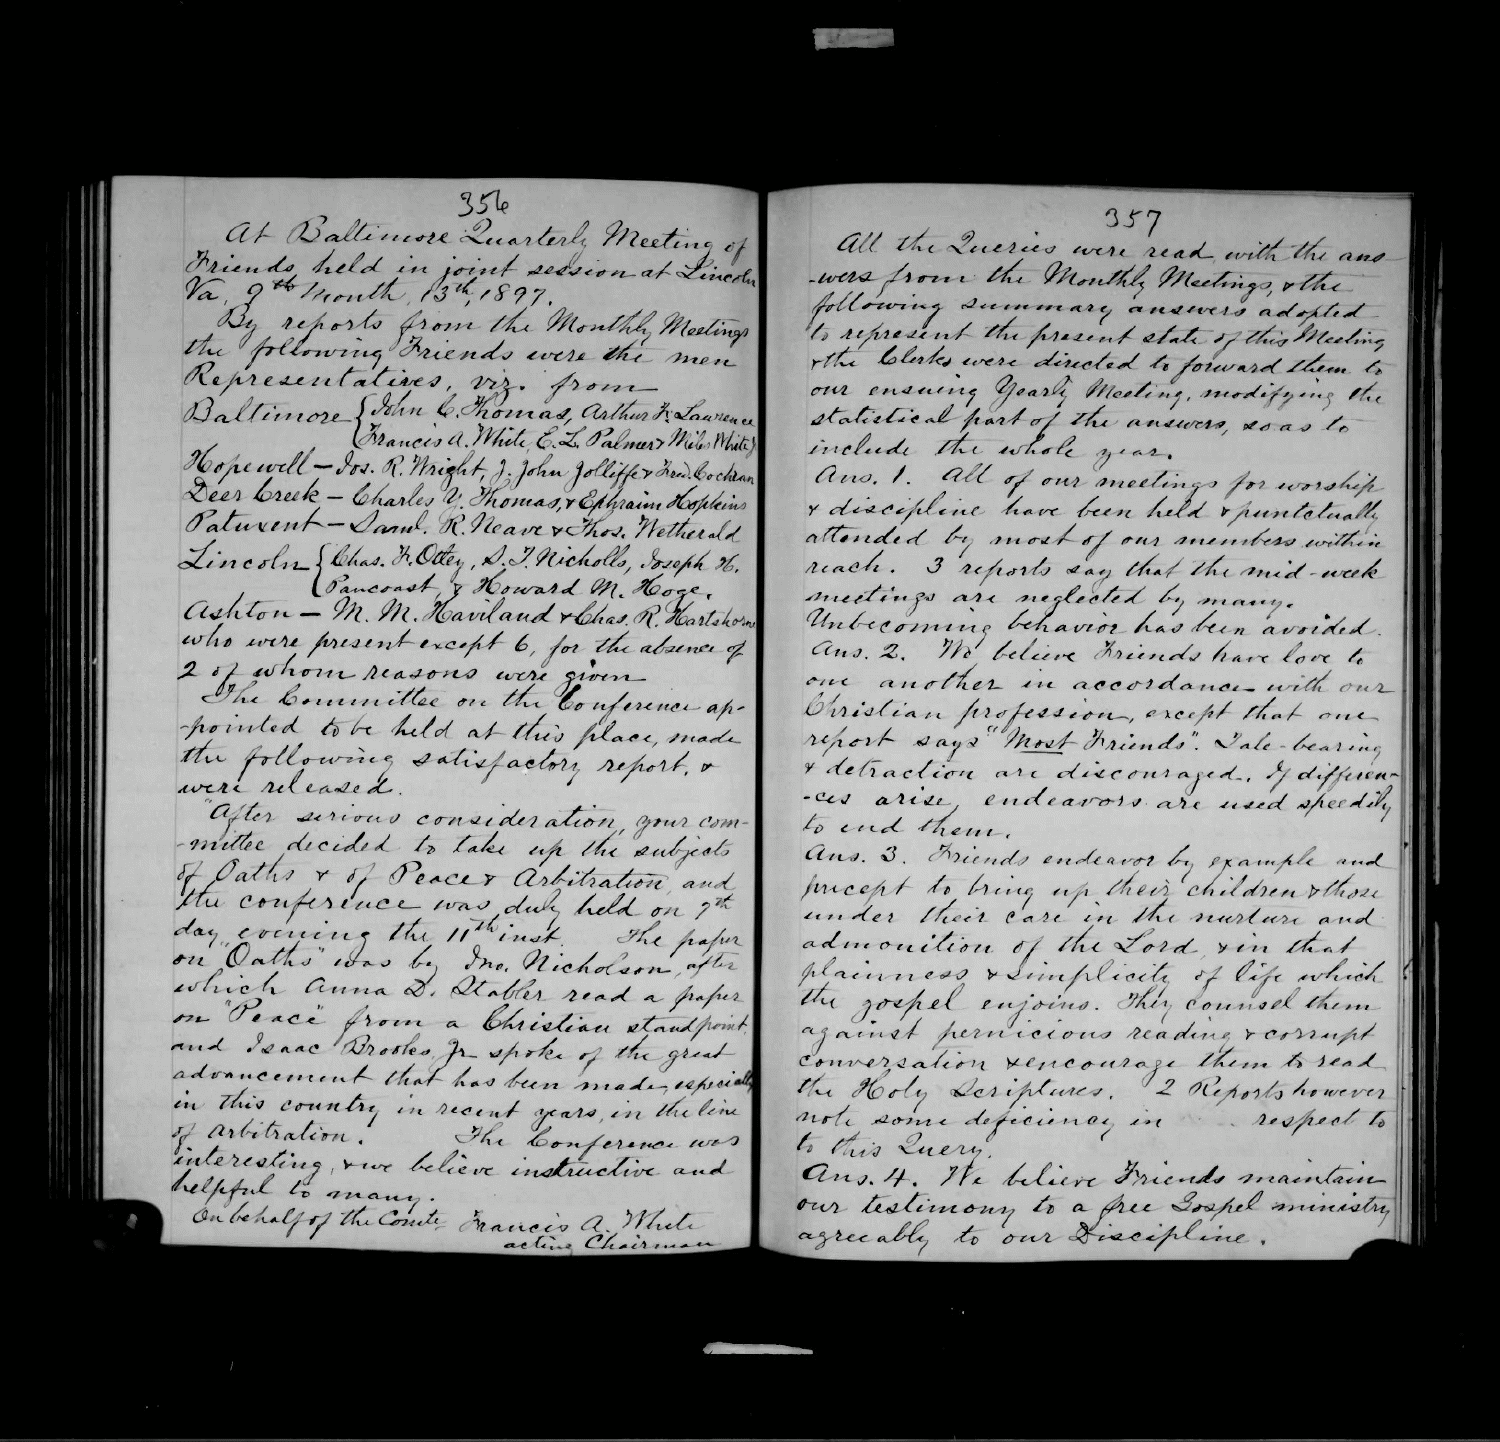 356
At Baltimore Quarterly Meeting of
Friends, held in joint session at Lincoln
Va, 9th Month, 13th, 1897.
By reports from the Monthly Meetings
the following Friends were the men
Representatives, viz. from
Baltimore { John C. Thomas, Arthur F. Lawrence
Francis A. White, E. L. Palmer & Miles White Jr
Hopewell — Jos. R. Wright, J. John Jolliffe & Fred. Cochran
Deer Creek — Charles Y. Thomas, & Ephraim Hopkins
Patuxent — Saml. R. Neave & Thos. Wetherald
Lincoln { Chas. F. Otley, S. T. Nicholls, Joseph H.
Pancoast, & Howard M. Hoge.
Ashton — M. M. Haviland & Chas. R. Hartshorne
who were present except 6, for the absence of
2 of whom reasons were given
The Committee on the Conference ap-
-pointed to be held at this place, made
the following satisfactory report, &
were released.
"After serious consideration, your com-
-mittee decided to take up the subjects
of Oaths & of Peace & Arbitration, and
the conference was duly held on 7th
day evening the 11th inst. The paper
on "Oaths" was by Jno. Nicholson, after
which Anna D. Stabler read a paper
on "Peace" from a Christian standpoint,
and Isaac Brooks, Jr spoke of the great
advancement that has been made, especially
in this country in recent years, in the line
of arbitration. The Conference was
interesting, & we believe instructive and
helpful to many.
On behalf of the Comte Francis A. White
acting Chairman
357
All the Queries were read with the ans-
-wers from the Monthly Meetings, & the
following summary answers adopted
to represent the present state of this Meeting
& the Clerks were directed to forward them to
our ensuing Yearly Meeting, modifying the
statistical part of the answers, so as to
include the whole year.
Ans. 1. All of our meetings for worship
& discipline have been held & punctually
attended by most of our members within
reach. 3 reports say that the mid-week
meetings are neglected by many.
Unbecoming behavior has been avoided.
Ans. 2. We believe Friends have love to
one another in accordance with our
Christian profession, except that one
report says "Most Friends". Tale-bearing
& detraction are discouraged. If differen-
-ces arise, endeavors are used speedily
to end them.
Ans. 3. Friends endeavor by example and
precept to bring up their children & those
under their care in the nurture and
admonition of the Lord, & in that
plainness & simplicity of life which
the gospel enjoins. They counsel them
against pernicious reading & corrupt
conversation & encourage them to read
the Holy Scriptures. 2 Reports however
note some deficiency in respect to
to this Query.
Ans. 4. We believe Friends maintain
our testimony to a free Gospel ministry
agreeably to our Discipline.